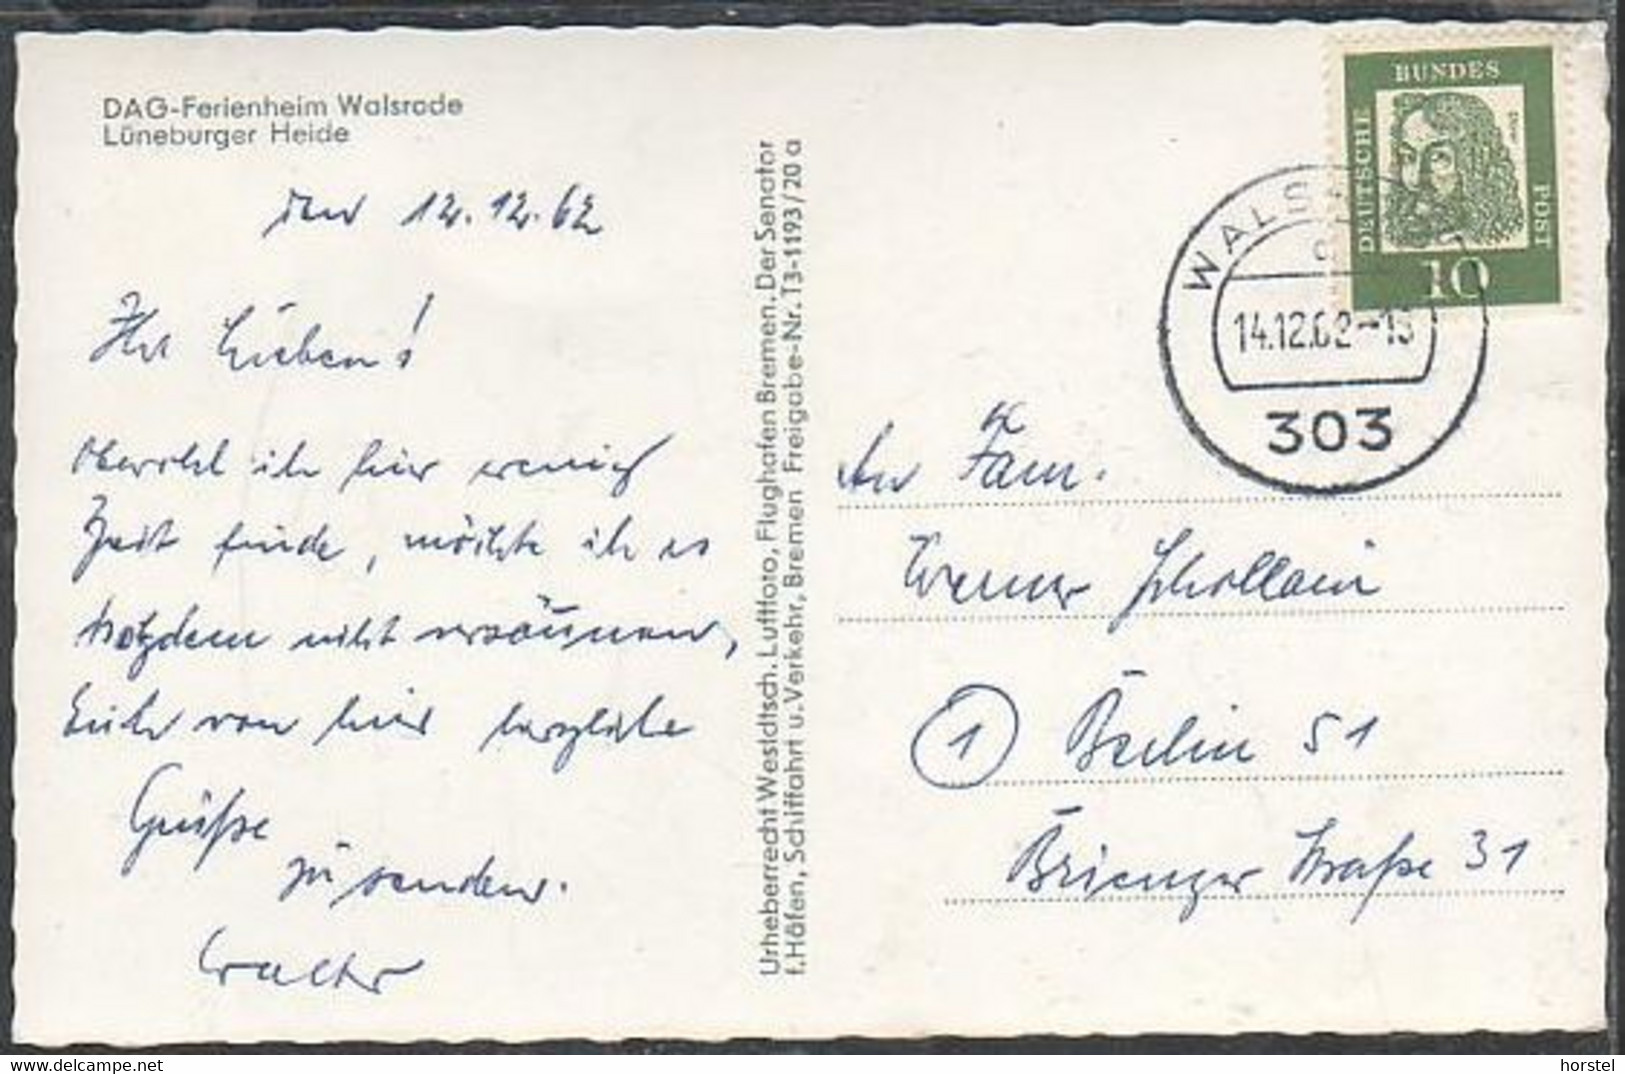 DAG-Ferienheim Walsrode
Lüneburger Heide
den 12.12.62
Ihr Lieben!
Obwohl ich hier wenig
Zeit finde, möchte ich es
trotzdem nicht versäumen,
Euch von hier herzliche
Grüße
zu senden.
Walter
Urheberrecht Westdtsch. Luftfoto, Flughafen Bremen. Der Senator
f. Häfen, Schiffahrt u. Verkehr, Bremen Freigabe-Nr. T3-1193/20 a
DEUTSCHE
BUNDES
POST
10
14.12.62-13
303
An Fam.
Werner
1 Berlin 51
Brienzer Straße 31
www.delcampe.net
horstel